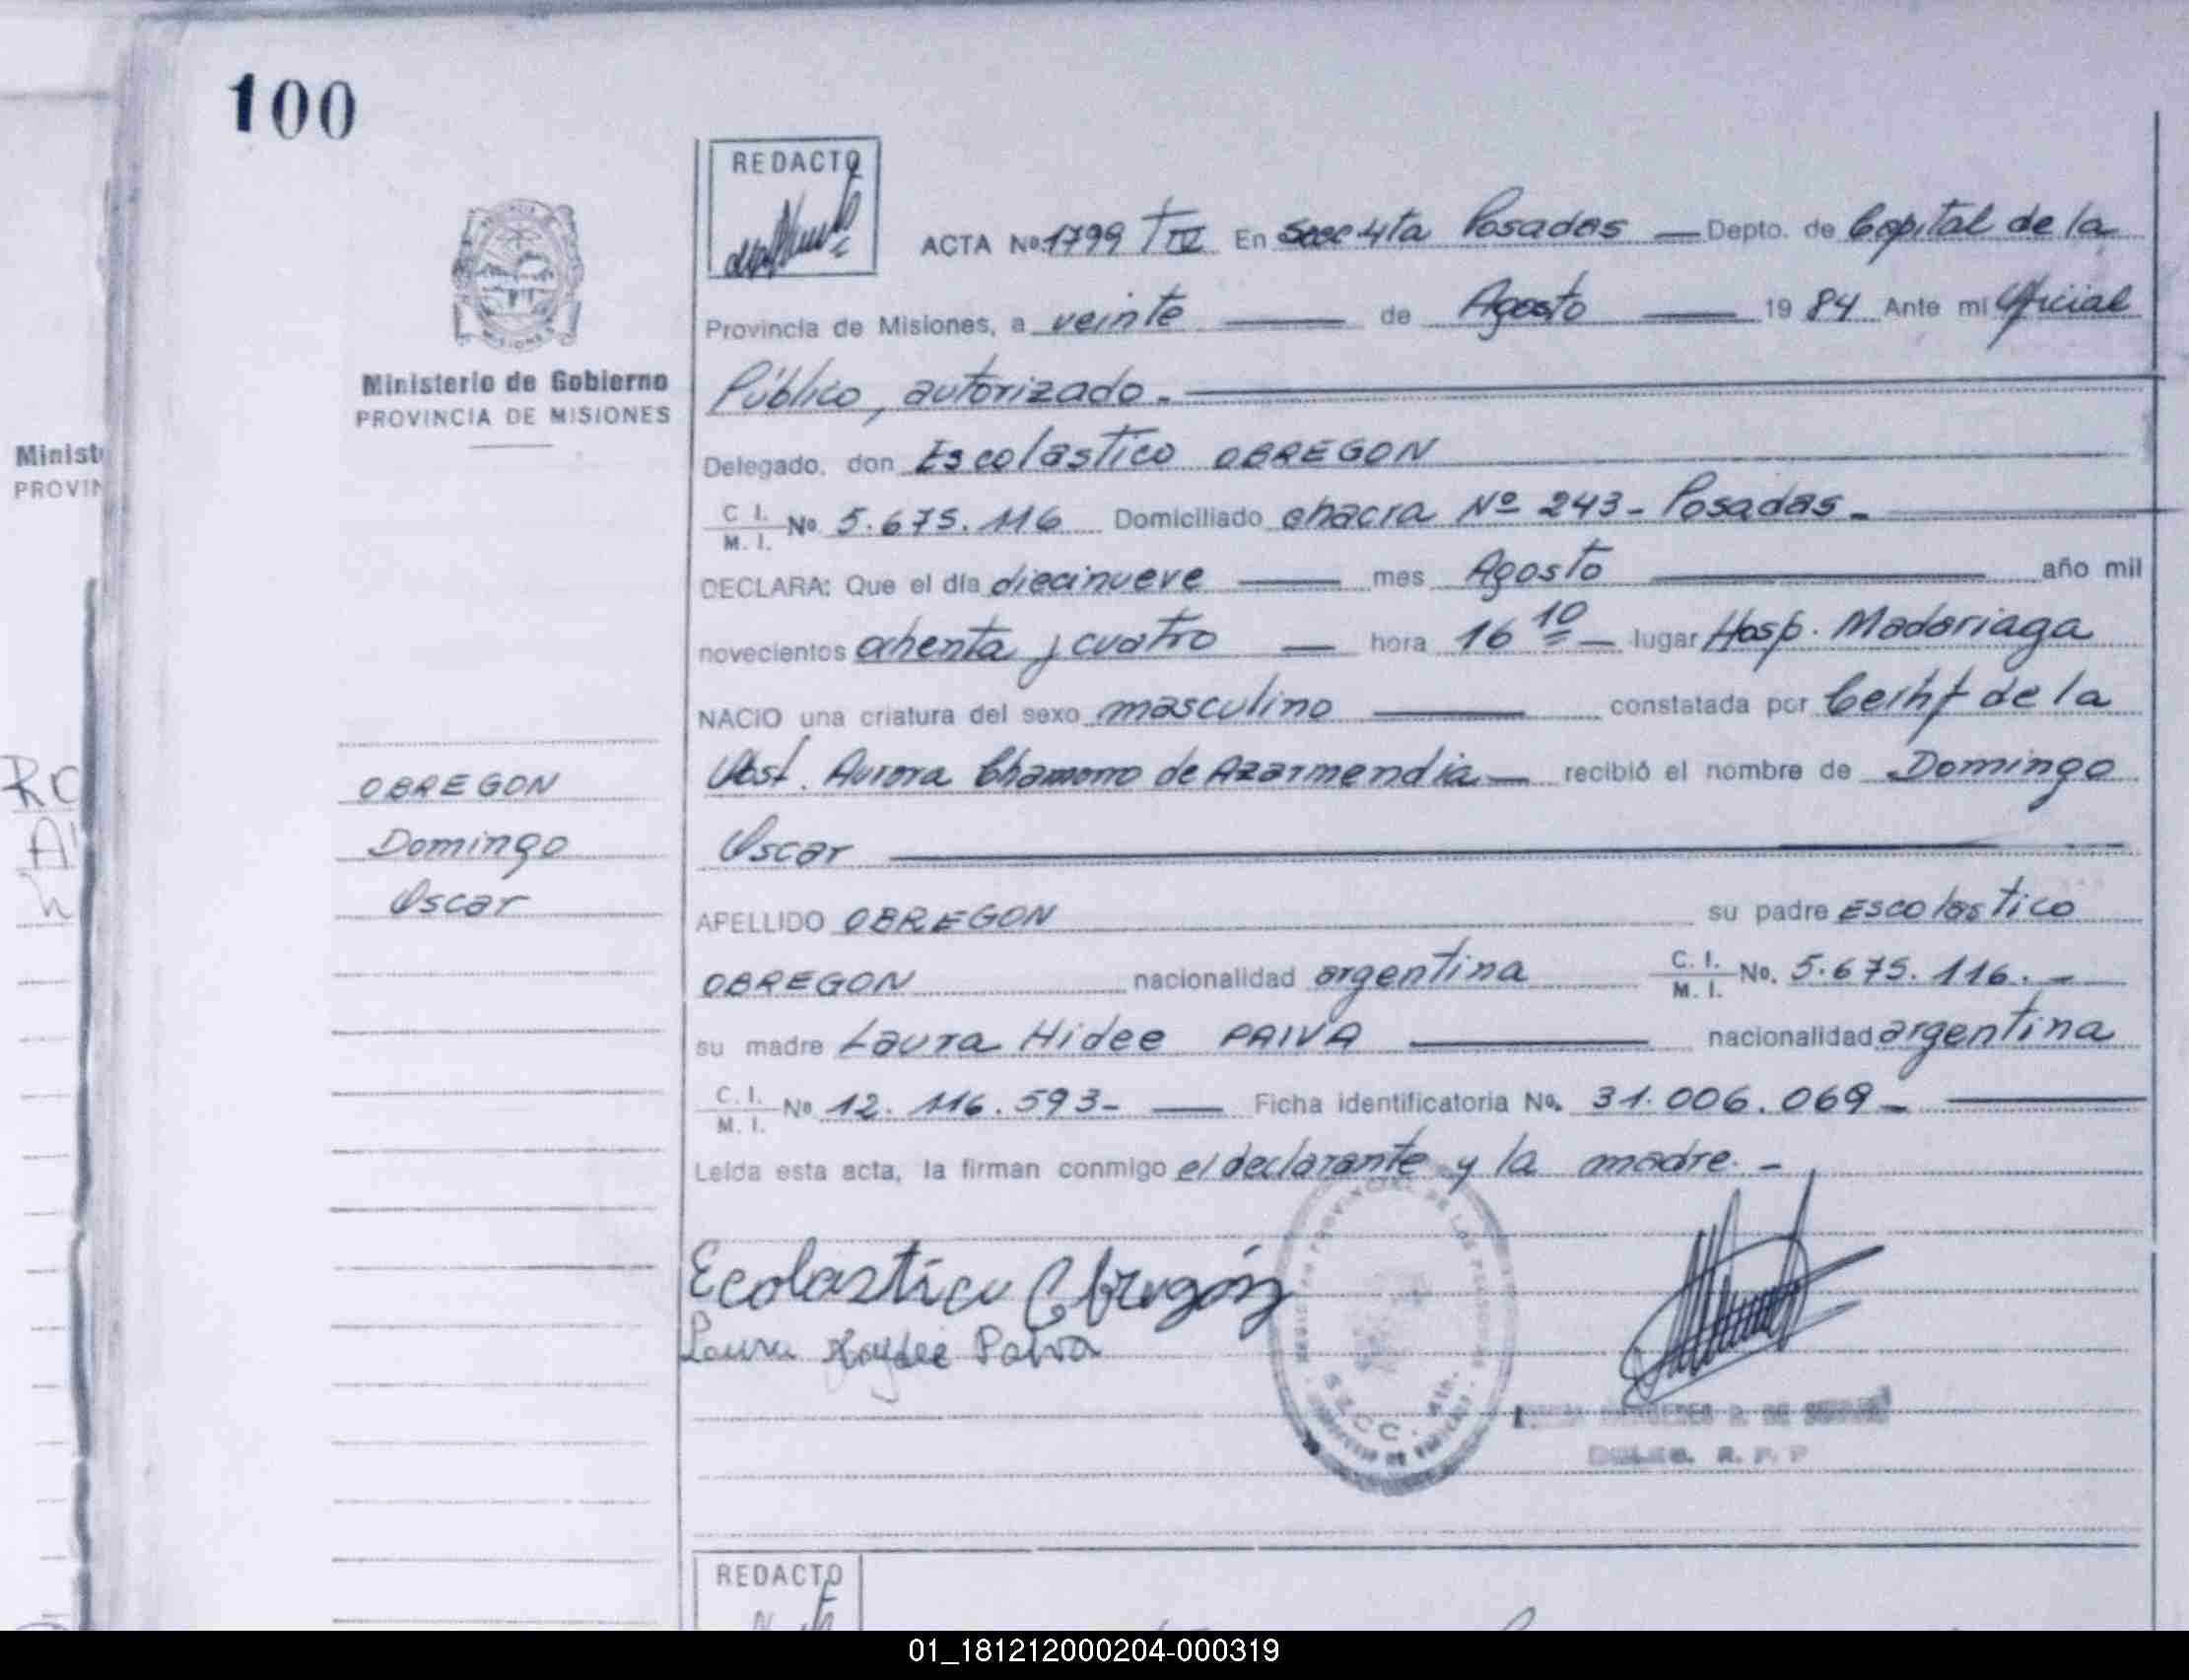 100
REDACTO
ACTA No 1799 T IV En Secc 4ta Posadas — Depto. de Capital de la
Provincia de Misiones, a veinte — de Agosto — 19 84 Ante mi Oficial
Ministerio de Gobierno
PROVINCIA DE MISIONES
Público, autorizado.-
Delegado, don Escolástico OBREGON
C. I. M. I. No. 5.675.116 Domiciliado chacra Nº 243 - Posadas.-
DECLARA: Que el día diecinueve — mes Agosto — año mil
novecientos ochenta y cuatro — hora 16 10 — lugar Hosp. Madariaga
NACIO una criatura del sexo masculino — constatada por Certif de la
Obst. Aurora Chamorro de Azarmendia — recibió el nombre de Domingo
Oscar
OBREGON
Domingo
Oscar
APELLIDO OBREGON su padre Escolastico
OBREGON nacionalidad argentina C. I. M. I. No. 5.675.116.-
su madre Laura Hidee PAIVA — nacionalidad argentina
C. I. M. I. No 12.116.593- — Ficha identificatoria No. 31.006.069-
Leída esta acta, la firman conmigo el declarante y la madre.-
Ecolastico Obregón
Laura Haydee Paiva
REGISTRO PROVINCIAL DE LAS PERSONAS
SECC. 4ta.
DELEG. R. P. P
REDACTO
Minist
PROVIN
01_181212000204-000319